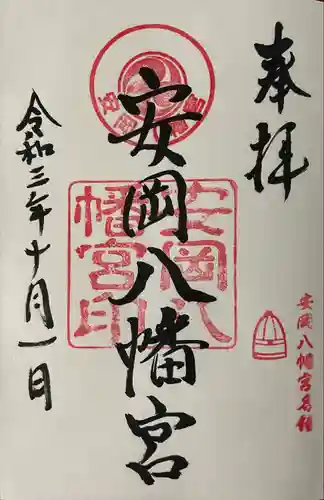 奉拝
安岡八幡宮
令和三年十月一日
安岡八幡宮印
安岡八幡宮名鈴